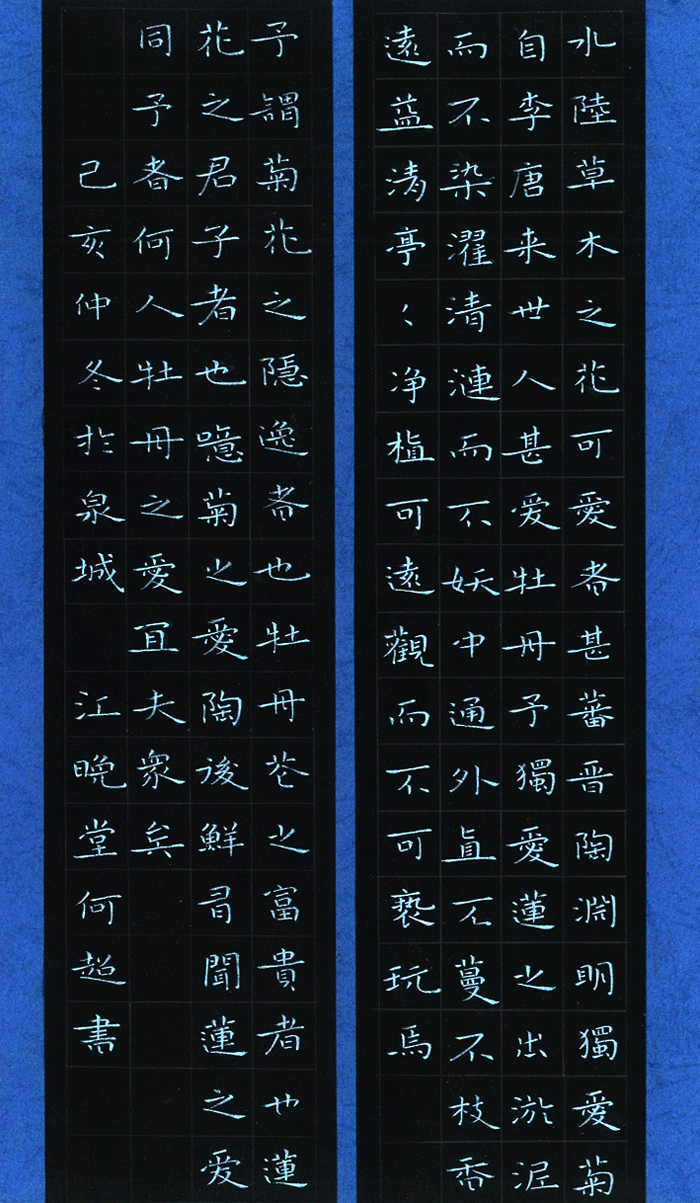 水陸草木之花可愛者甚蕃晋陶淵明獨愛菊
自李唐来世人甚爱牡丹予獨愛蓮之出淤泥
而不染濯清漣而不妖中通外直不蔓不枝香
遠益清亭〻净植可遠觀而不可亵玩焉
予謂菊花之隱逸者也牡丹花之富貴者也蓮
花之君子者也噫菊之愛陶後鮮有聞蓮之爱
同予者何人牡丹之愛宜夫衆矣
己亥仲冬於泉城 江晚堂何超書